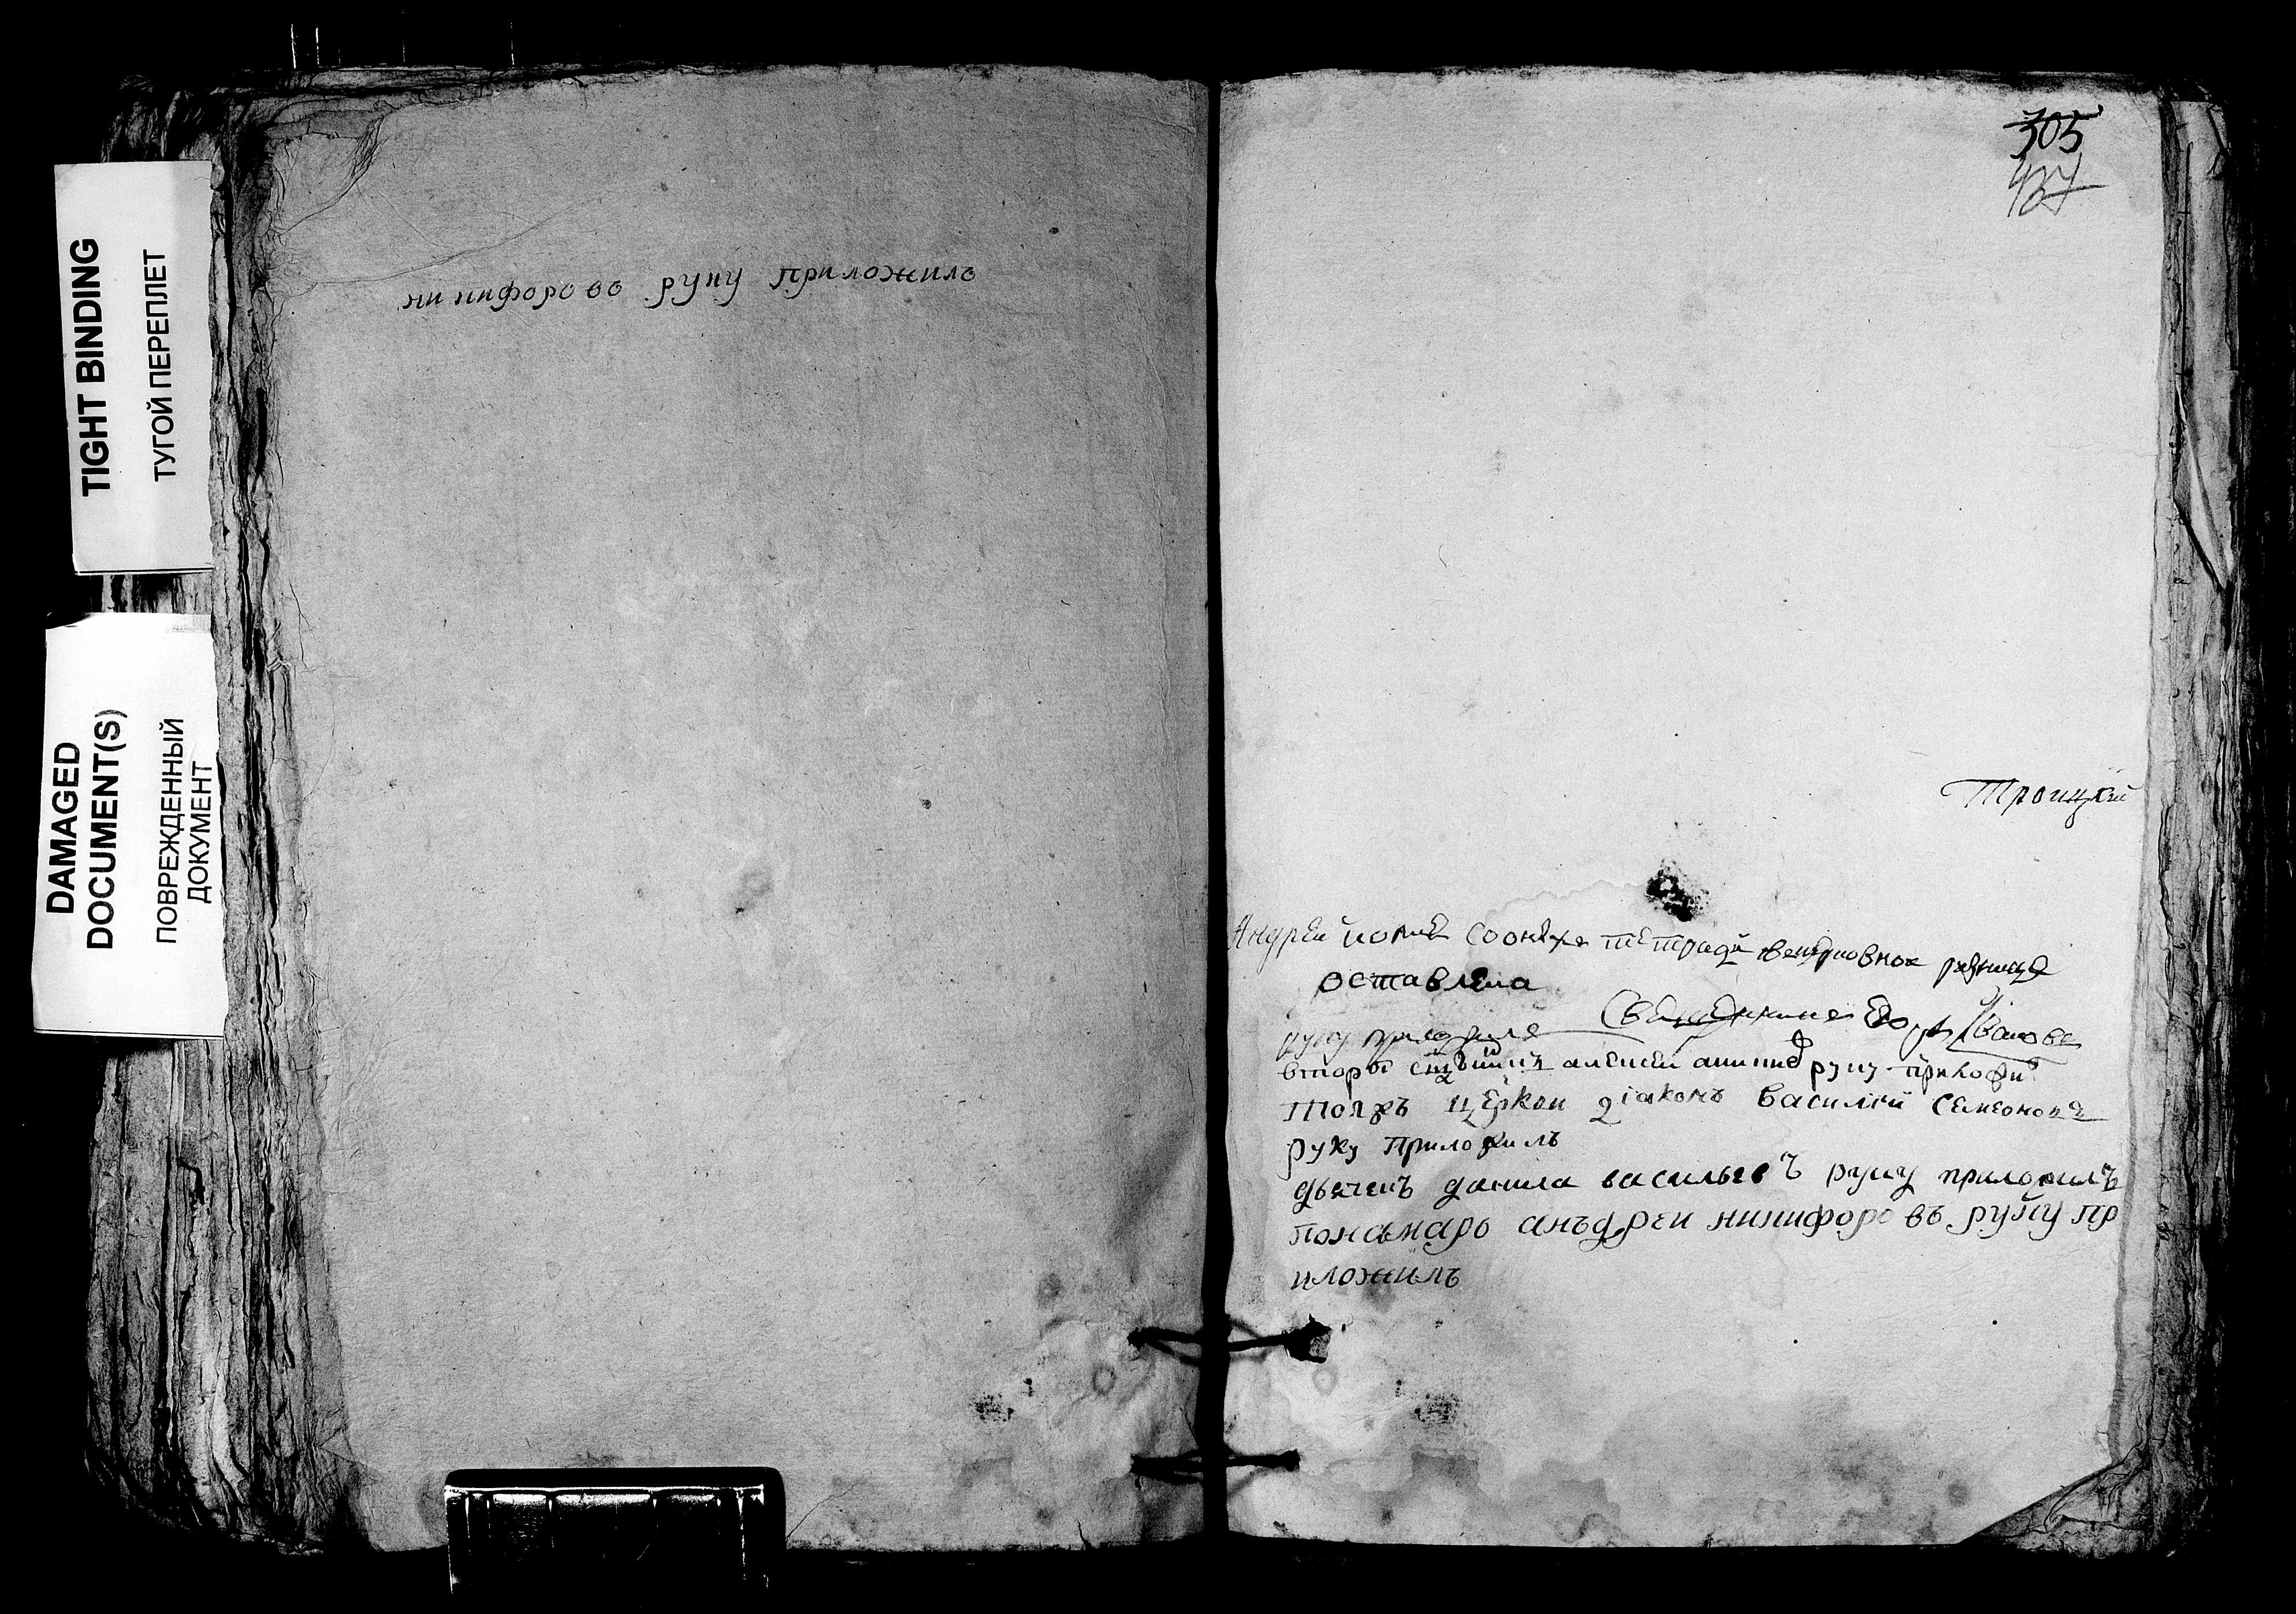 TIGHT BINDING
ТУГОЙ ПЕРЕПЛЕТ
DAMAGED
DOCUMENT(S)
ПОВРЕЖДЕННЫЙ
ДОКУМЕНТ
никифоровъ руку приложилъ
305
437
Троицкой
Андрей копие тетради
оставлена
руку приложилъ Священникъ Иванове
вторы алексеи руку
тояжъ церкви діаконъ василій семеоновъ
руку приложилъ
дьячекъ данила васильевъ руку приложилъ
понамарь анъдреи никифоровъ руку пр
иложилъ